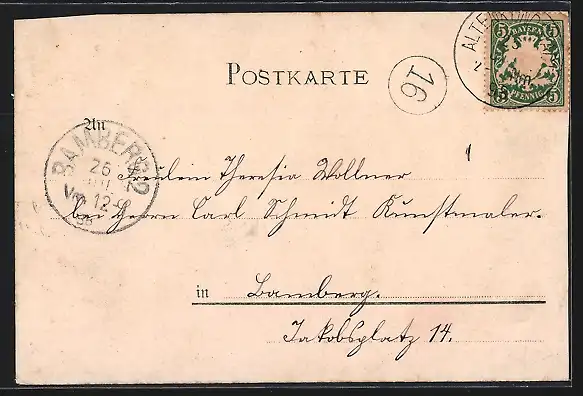 POSTKARTE
16
5 BAYERN 5
5 PFENNIG 5
An
BAMBERG 2
26
Vm 12-
Fräulein Theresia Wollner
bei Herrn Carl Schmidt Kunstmaler.
in Bamberg.
Jakobsplatz 14.